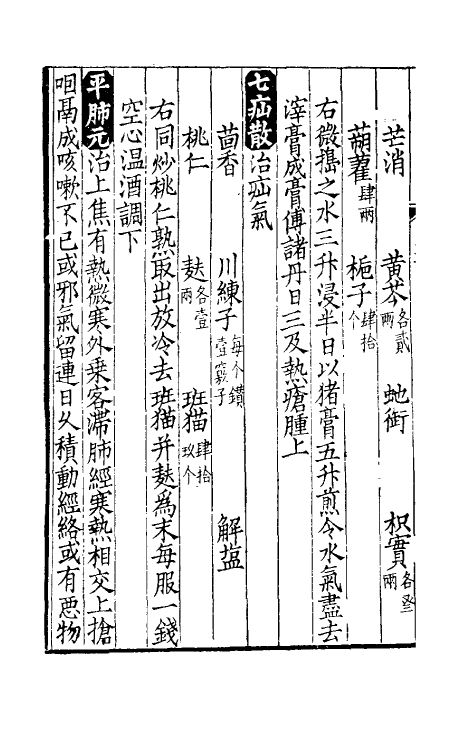 芒消 黄芩各貳兩 虵銜 枳實各叁兩
蒴藋肆兩 梔子肆拾个
右微擣之水三升浸半日以猪膏五升煎令水氣盡去
滓膏成膏傅諸丹日三及熱瘡腫上
七疝散治疝氣
茴香 川練子每个鑽壹竅子 解塩
桃仁 麸各壹兩 班猫肆拾玖个
右同炒桃仁熟取出放冷去班猫并麸為末每服一錢
空心温酒調下
平肺元治上焦有熱微寒外乗客滯肺經寒熱相交上搶
咽鬲成咳嗽不已或邪氣留連日久積動經絡或有恶物